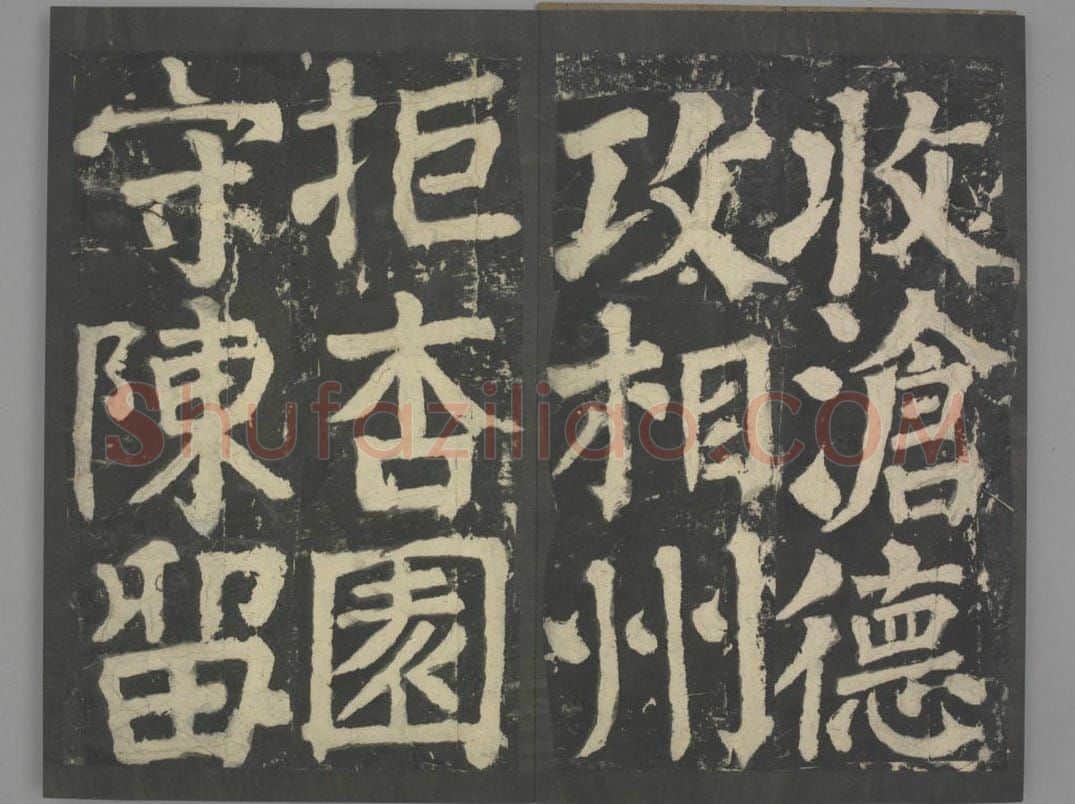 收滄德
攻相州
拒杏園
守陳留
Shufaziliao.COM